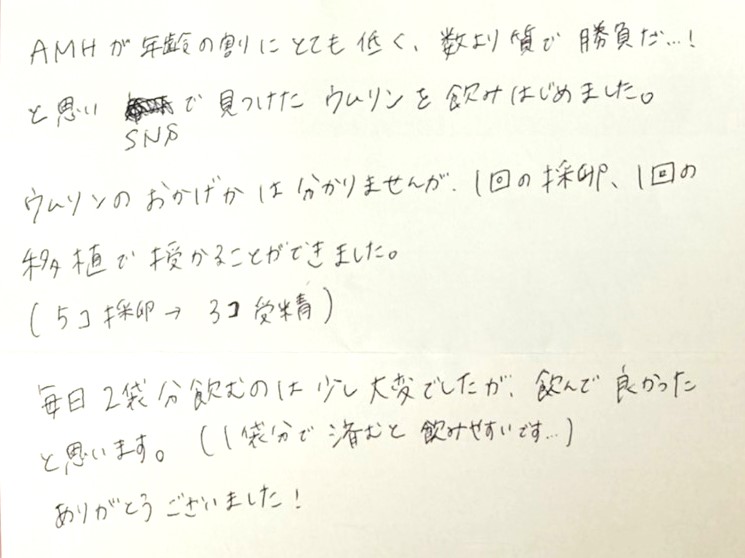 AMHが年齢の割にとても低く、数より質で勝負だ…!
と思い SNSで見つけたウムリンを飲みはじめました。
ウムリンのおかげかは分かりませんが、1回の採卵、1回の
移植で授かることができました。
(5コ採卵→3コ受精)
毎日2袋分飲むのは少し大変でしたが、飲んで良かった
と思います。(1袋分で済むと飲みやすいです…)
ありがとうございました!